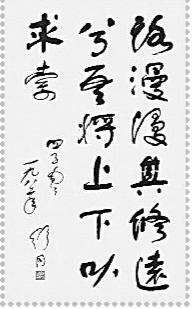 路漫漫其修遠
兮吾将上下而
求索
一九八年
舒同